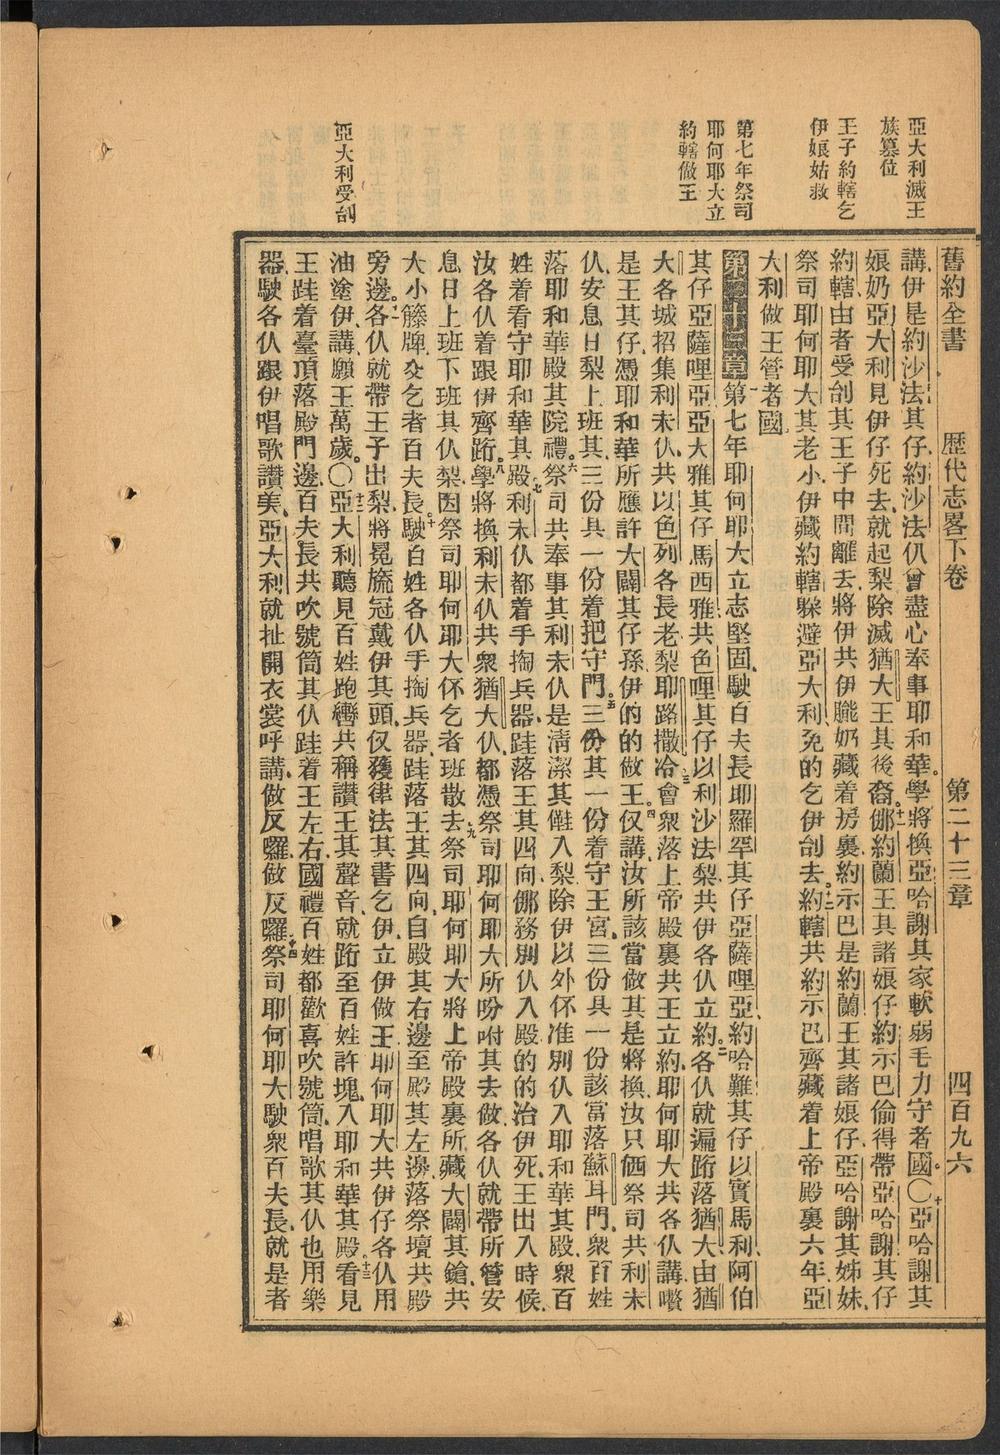 亞大利滅王
族篡位
王子約轄乞
伊娘姑救
第七年祭司
耶何耶大立
約轄做王
亞大利受刣
舊約全書 歷代志畧下卷 第二十三章 四百九六
講、伊是約沙法其仔、約沙法仈曾盡心奉事耶和華。學將換亞哈謝其家軟弱毛力守者國。〇十亞哈謝其
娘奶亞大利見伊仔死去、就起梨除滅猶大王其後裔。十一儂約蘭王其諸娘仔約示巴偷得帶亞哈謝其仔
約轄、由者受刣其王子中間離去、將伊共伊膱奶藏着房裏、約示巴是約蘭王其諸娘仔、亞哈謝其姊妹、
祭司耶何耶大其老小、伊藏約轄躲避亞大利、免的乞伊刣去。十二約轄共約示巴齊藏着上帝殿裏六年、亞
大利做王管者國。
第二十三章 一第七年耶何耶大立志堅固、駛百夫長耶羅罕其仔亞薩哩亞、約哈難其仔以實馬利、阿伯
其仔亞薩哩亞、亞大雅其仔馬西雅、共色哩其仔以利沙法梨、共伊各仈立約。二各仈就遍跻落猶大、由猶
大各城招集利未仈、共以色列各長老、梨耶路撒冷。三會眾落上帝殿裏共王立約、耶何耶大共各仈講、嚽
是王其仔、憑耶和華所應許大闢其仔孫、伊的的做王。四仅講、汝所該當做其是將換、汝只価祭司共利未
仈、安息日梨上班其、三份其一份着把守門。五三份其一份着守王宮、三份其一份該當落蘇耳門、眾百姓
落耶和華殿其院禮。六祭司共奉事其利未仈是清潔其、㑚入梨、除伊以外伓准別仈入耶和華其殿、眾百
姓着看守耶和華其殿。七利未仈都着手掏兵器、跬落王其四向、儂務別仈入殿、的的治伊死、王出入時候、
汝各仈着跟伊齊跻。八學將換利未仈共眾猶大仈、都憑祭司耶何耶大所吩咐其去做、各仈就帶所管安
息日上班下班其仈梨、因祭司耶何耶大伓乞者班散去。九祭司耶何耶大將上帝殿裏所藏大闢其鎗、共
大小籐牌、交乞者百夫長。十駛百姓各仈手掏兵器、跬落王其四向、自殿其右邊至殿其左邊、落祭壇共殿
旁邊。十一各仈就帶王子出梨、將冕旒冠戴伊其頭、仅獲律法其書乞伊、立伊做王、耶何耶大共伊仔各仈用
油塗伊、講、願王萬歲。〇十二亞大利聽見百姓跑轡共稱讚王其聲音、就跻至百姓許塊、入耶和華其殿。十三看見
王跬着臺頂、落殿門邊、百夫長共吹號筒其仈跬着王左右、國禮百姓都歡喜吹號筒、唱歌其仈也用樂
器、駛各仈跟伊唱歌讚美、亞大利就扯開衣裳呼講、做反囉、做反囉。十四祭司耶何耶大駛眾百夫長、就是者